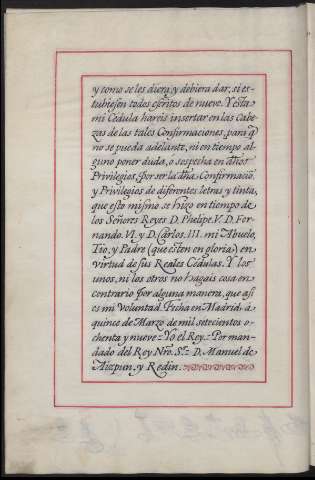 y como se les diera, y debiera dar, si es-
tubiesen todos escritos de nueve. Y esta
mi Cedula hareis insertar en las Cabe-
zas de las tales Confirmaciones, para q̃
no se pueda adelante, ni en tiempo al-
guno poner duda, o sospecha en dhõs
Privilegios, por ser la dha Confirmacio
y Privilegios de diferentes letras y tinta,
que esto mismo se hizo en tiempo de
los Señores Reyes D. Phelipe. V. D. Fer-
nando. VI. y D. Carlos. III. mi Abuelo,
Tio, y Padre (que esten en gloria) en
virtud de sus Reales Cedulas. Y los
unos, ni los otros no hagais cosa en
contrario por alguna manera, que asi
es mi voluntad. Fecha en Madrid: a
quince de Marzo de mil setecientos o-
chenta y nueve = Yo el Rey = Por man-
dado del Rey Nrõ. Sr. = D. Manuel de
Aizpun, y Redin.